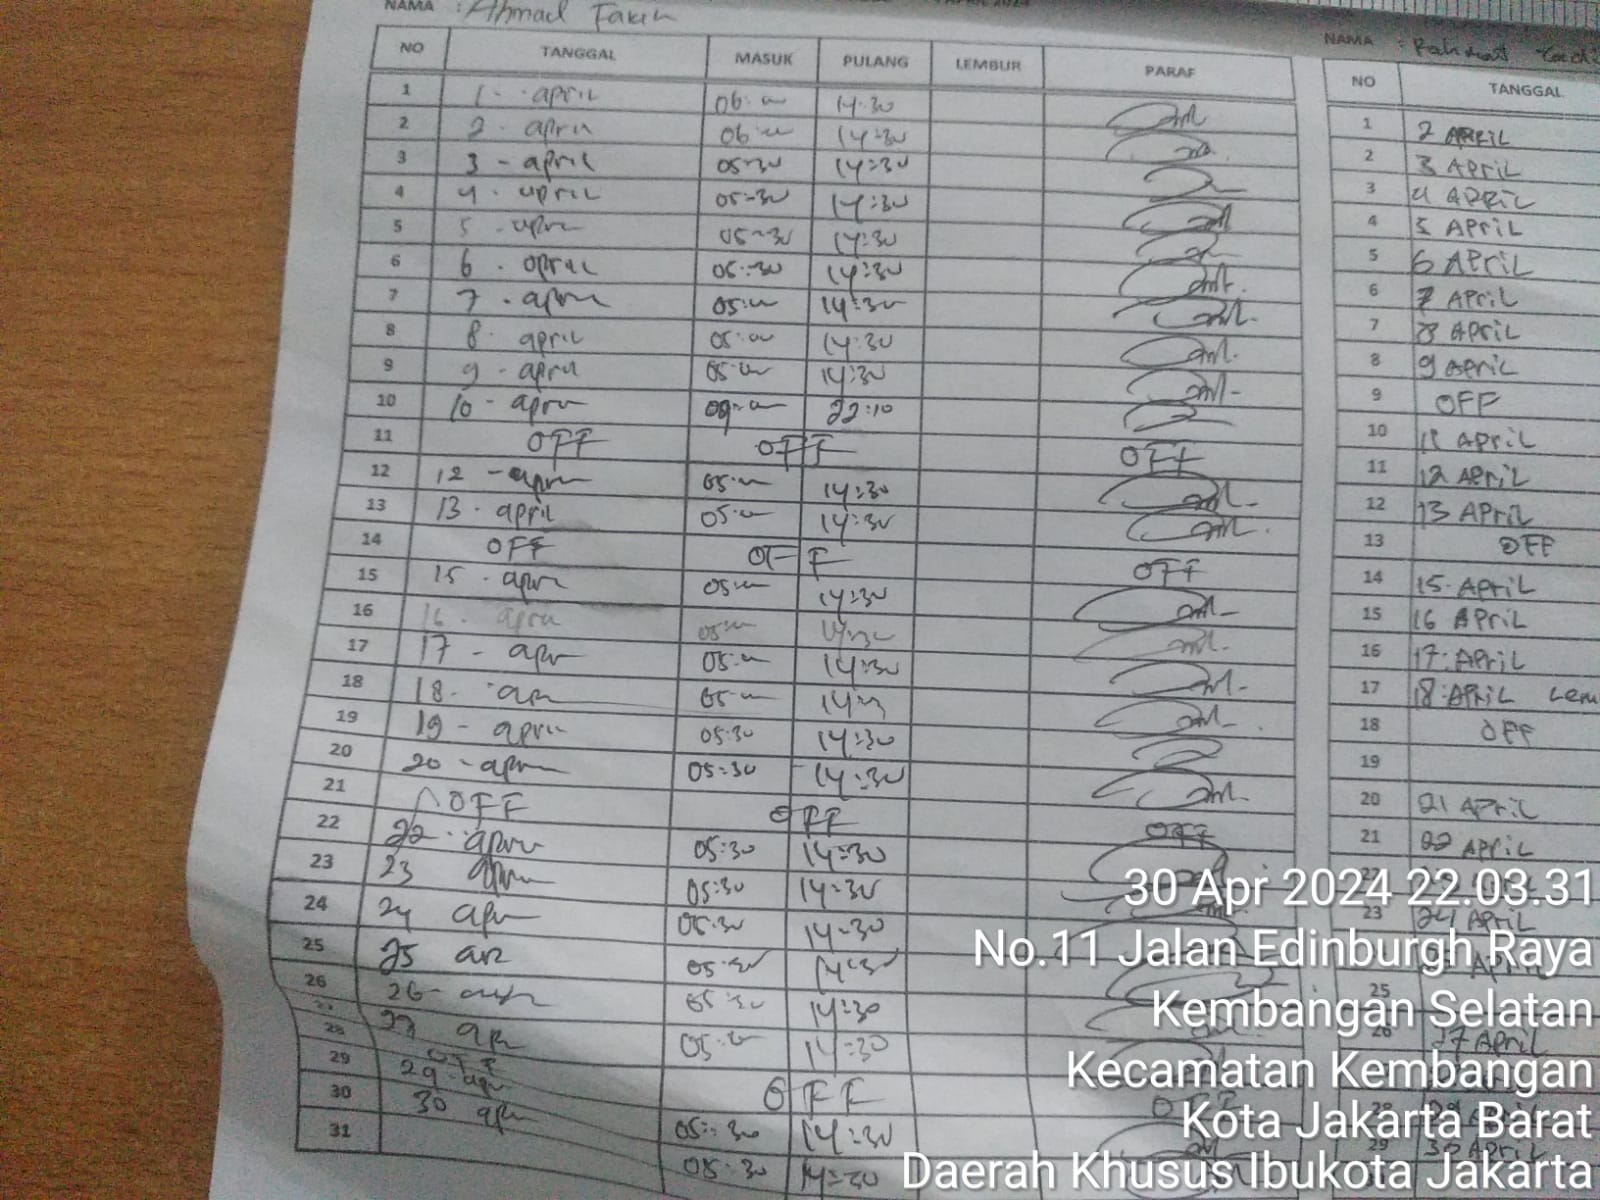 NAMA : Ahmad Fakih
NO TANGGAL MASUK PULANG LEMBUR PARAF
1 1 - april 06:00 14:30
2 2 - april 06:00 14:30
3 3 - april 05:30 14:30
4 4 - april 05:30 14:30
5 5 - april 05:30 14:30
6 6 - april 05:30 14:30
7 7 - april 05:00 14:30
8 8 - april 05:00 14:30
9 9 - april 05:00 14:30
10 10 - april 09:00 22:10
11 OFF OFF OFF
12 12 - april 05:00 14:30
13 13 - april 05:00 14:30
14 OFF OFF OFF
15 15 - april 05:00 14:30
16 16 - april 05:00 14:30
17 17 - apr 05:00 14:30
18 18 - apr 05:00 14:30
19 19 - april 05:30 14:30
20 20 - april 05:30 14:30
21 OFF OFF OFF
22 22 - april 05:30 14:30
23 23 april 05:30 14:30
24 24 apr 05:30 14:30
25 25 apr 05:30 14:30
26 26 - apr 05:30 14:30
27 27 apr 05:30 14:30
28 OFF OFF OFF
29 29 - apr 05:30 14:30
30 30 apr 05:30 14:30
31
NAMA : Rahmat
NO TANGGAL
1 2 APRIL
2 3 APRIL
3 4 APRIL
4 5 APRIL
5 6 APRIL
6 7 APRIL
7 8 APRIL
8 9 APRIL
9 OFF
10 11 APRIL
11 12 APRIL
12 13 APRIL
13 OFF
14 15 APRIL
15 16 APRIL
16 17 APRIL
17 18 APRIL Lem
18 OFF
19
20 21 APRIL
21 22 APRIL
23 24 APRIL
25
26 27 APRIL
28
29 30 APRIL
30 Apr 2024 22.03.31
No.11 Jalan Edinburgh Raya
Kembangan Selatan
Kecamatan Kembangan
Kota Jakarta Barat
Daerah Khusus Ibukota Jakarta